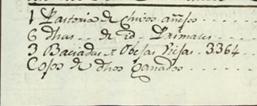 1 Pastoria de chivos añejos
6 dhas de id. Primales
3 Baciadas de Obejas Viejas 3364
Cosos de dhos Ganados